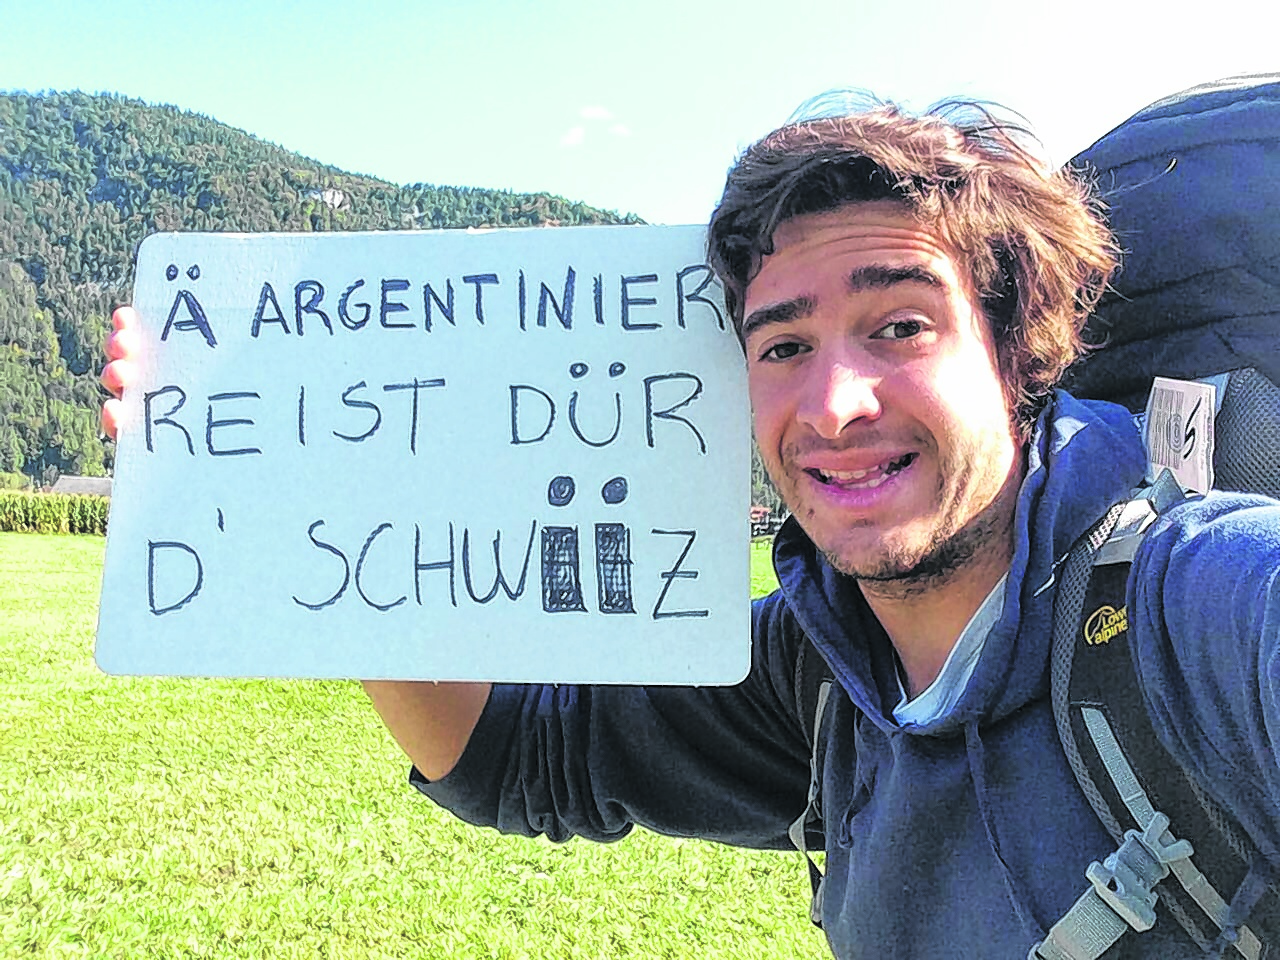 Ä ARGENTINIER
REIST DÜR
D' SCHWÏÏZ
Lowe
alpine
S